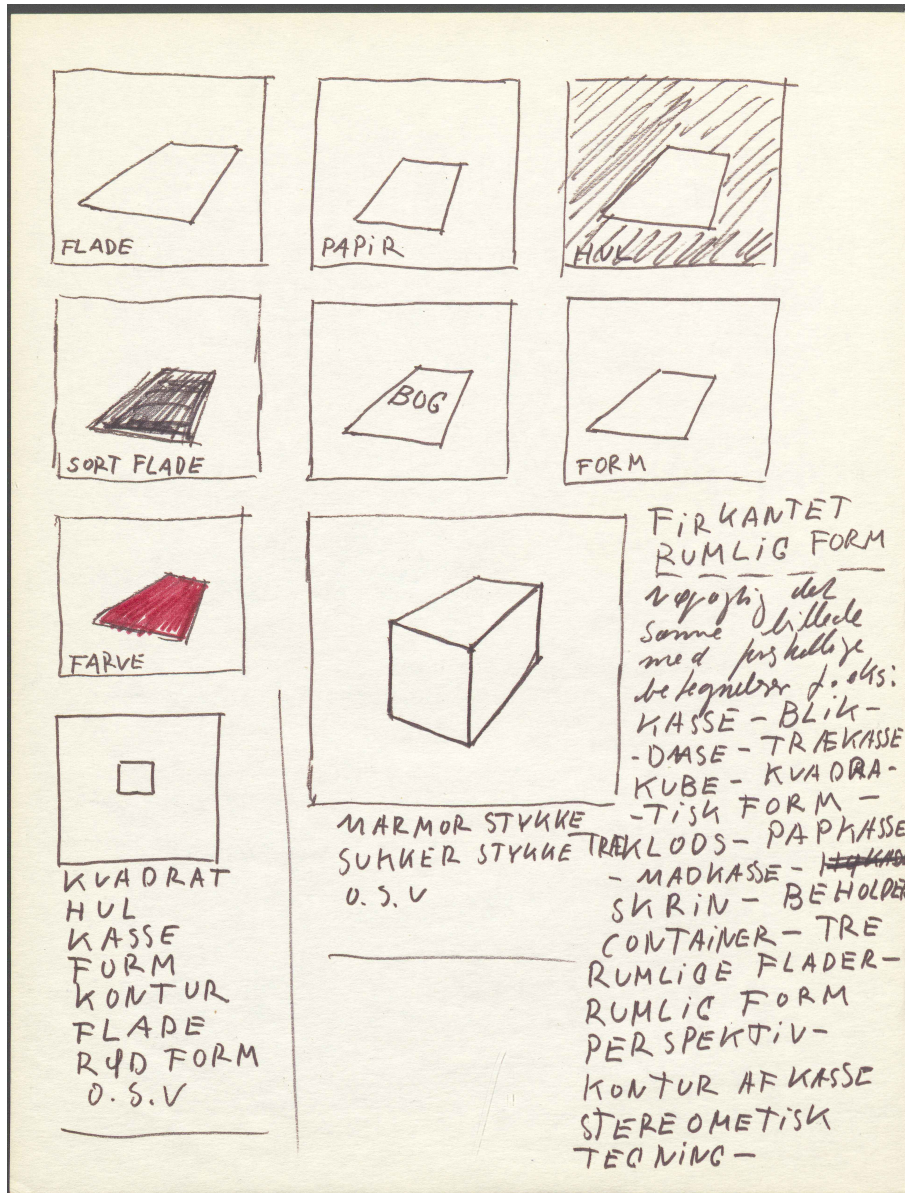 FLADE
PAPIR
HUL
SORT FLADE
BOG
FORM
FARVE
KVADRAT
HUL
KASSE
FORM
KONTUR
FLADE
RØD FORM
O.S.V
MARMOR STYKKE
SUKKER STYKKE
O.S.V
FIRKANTET
RUMLIG FORM
nøjagtig det
samme billede
med forskellige
betegnelser f.eks:
KASSE - BLIK-
-DAASE - TRÆKASSE
KUBE - KVADRA-
-TISK FORM -
TRÆKLODS - PAPKASSE
- MADKASSE -
SKRIN - BEHOLDER
CONTAINER - TRE
RUMLIGE FLADER-
RUMLIG FORM
PERSPEKTIV-
KONTUR AF KASSE
STEREOMETISK
TEGNING -